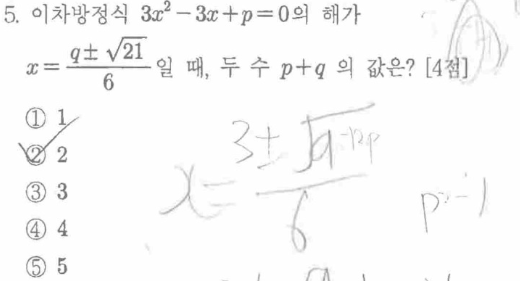 5. 이차방정식 3x²−3x+p=0의 해가
x = (q±√21)/6 일 때, 두 수 p+q 의 값은? [4점]
① 1
② 2
③ 3
④ 4
⑤ 5
x = (3±√(9-12p))/6
p=-1